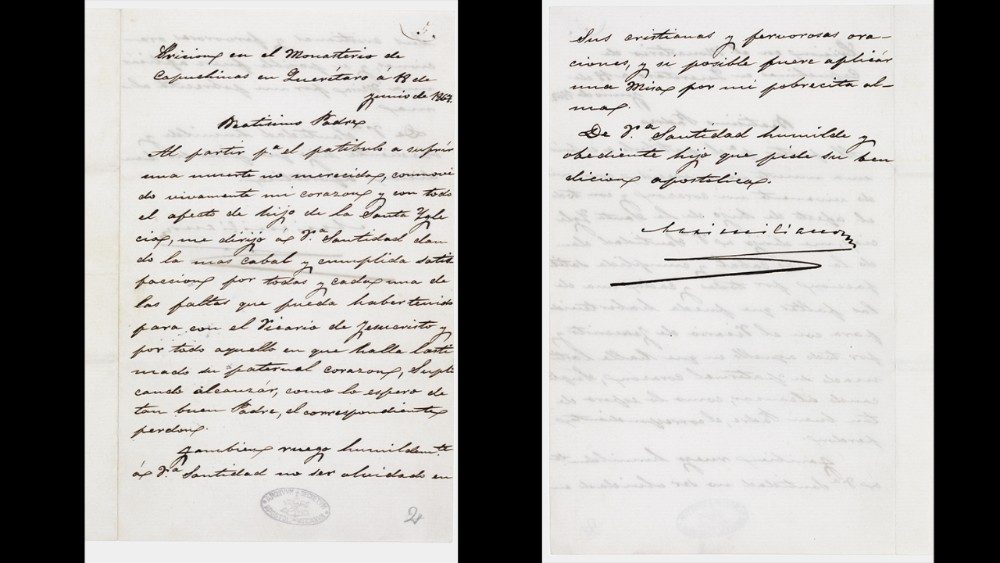 Pricion en el Monasterio de
Capuchinas en Querétaro á 18 de
junio de 1867.
Beatisimo Padre
Al partir p.ª el patibulo a sufrir
una muerte no merecida, conmovi
do vivamente mi corazon y con todo
el afecto de hijo de la Santa Ygle
cia, me dirijo á V.ª Santidad dan
do la mas cabal y cumplida satis
faccion por todas y cada una de
las faltas que pueda haber tenido
para con el Vicario de Jesucristo y
por todo aquello en que halla lasti
mado su paternal corazon, Supli
cando alcanzár, como lo espero de
tan buen Padre, el correspondiente
perdon.
Tambien ruego humildem.te
á V.ª Santidad no ser olvidado en
2
Sus cristianas y fervorosas ora-
ciones, y si posible fuere aplicár
una Misa por mi pobrecita al-
ma.
De V.ª Santidad humilde y
obediente hijo que pide su ben
dicion apostolica.
Maximiliano